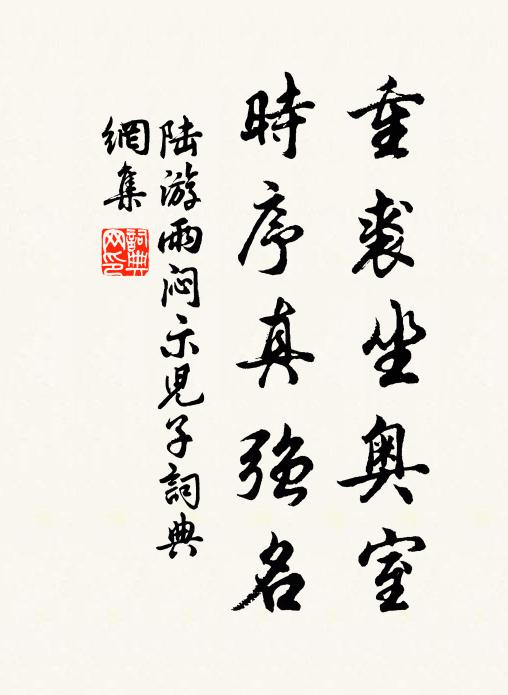 重裘坐奥室
時序真強名
陆游雨闷示児子詞典
網集
詞典
网印